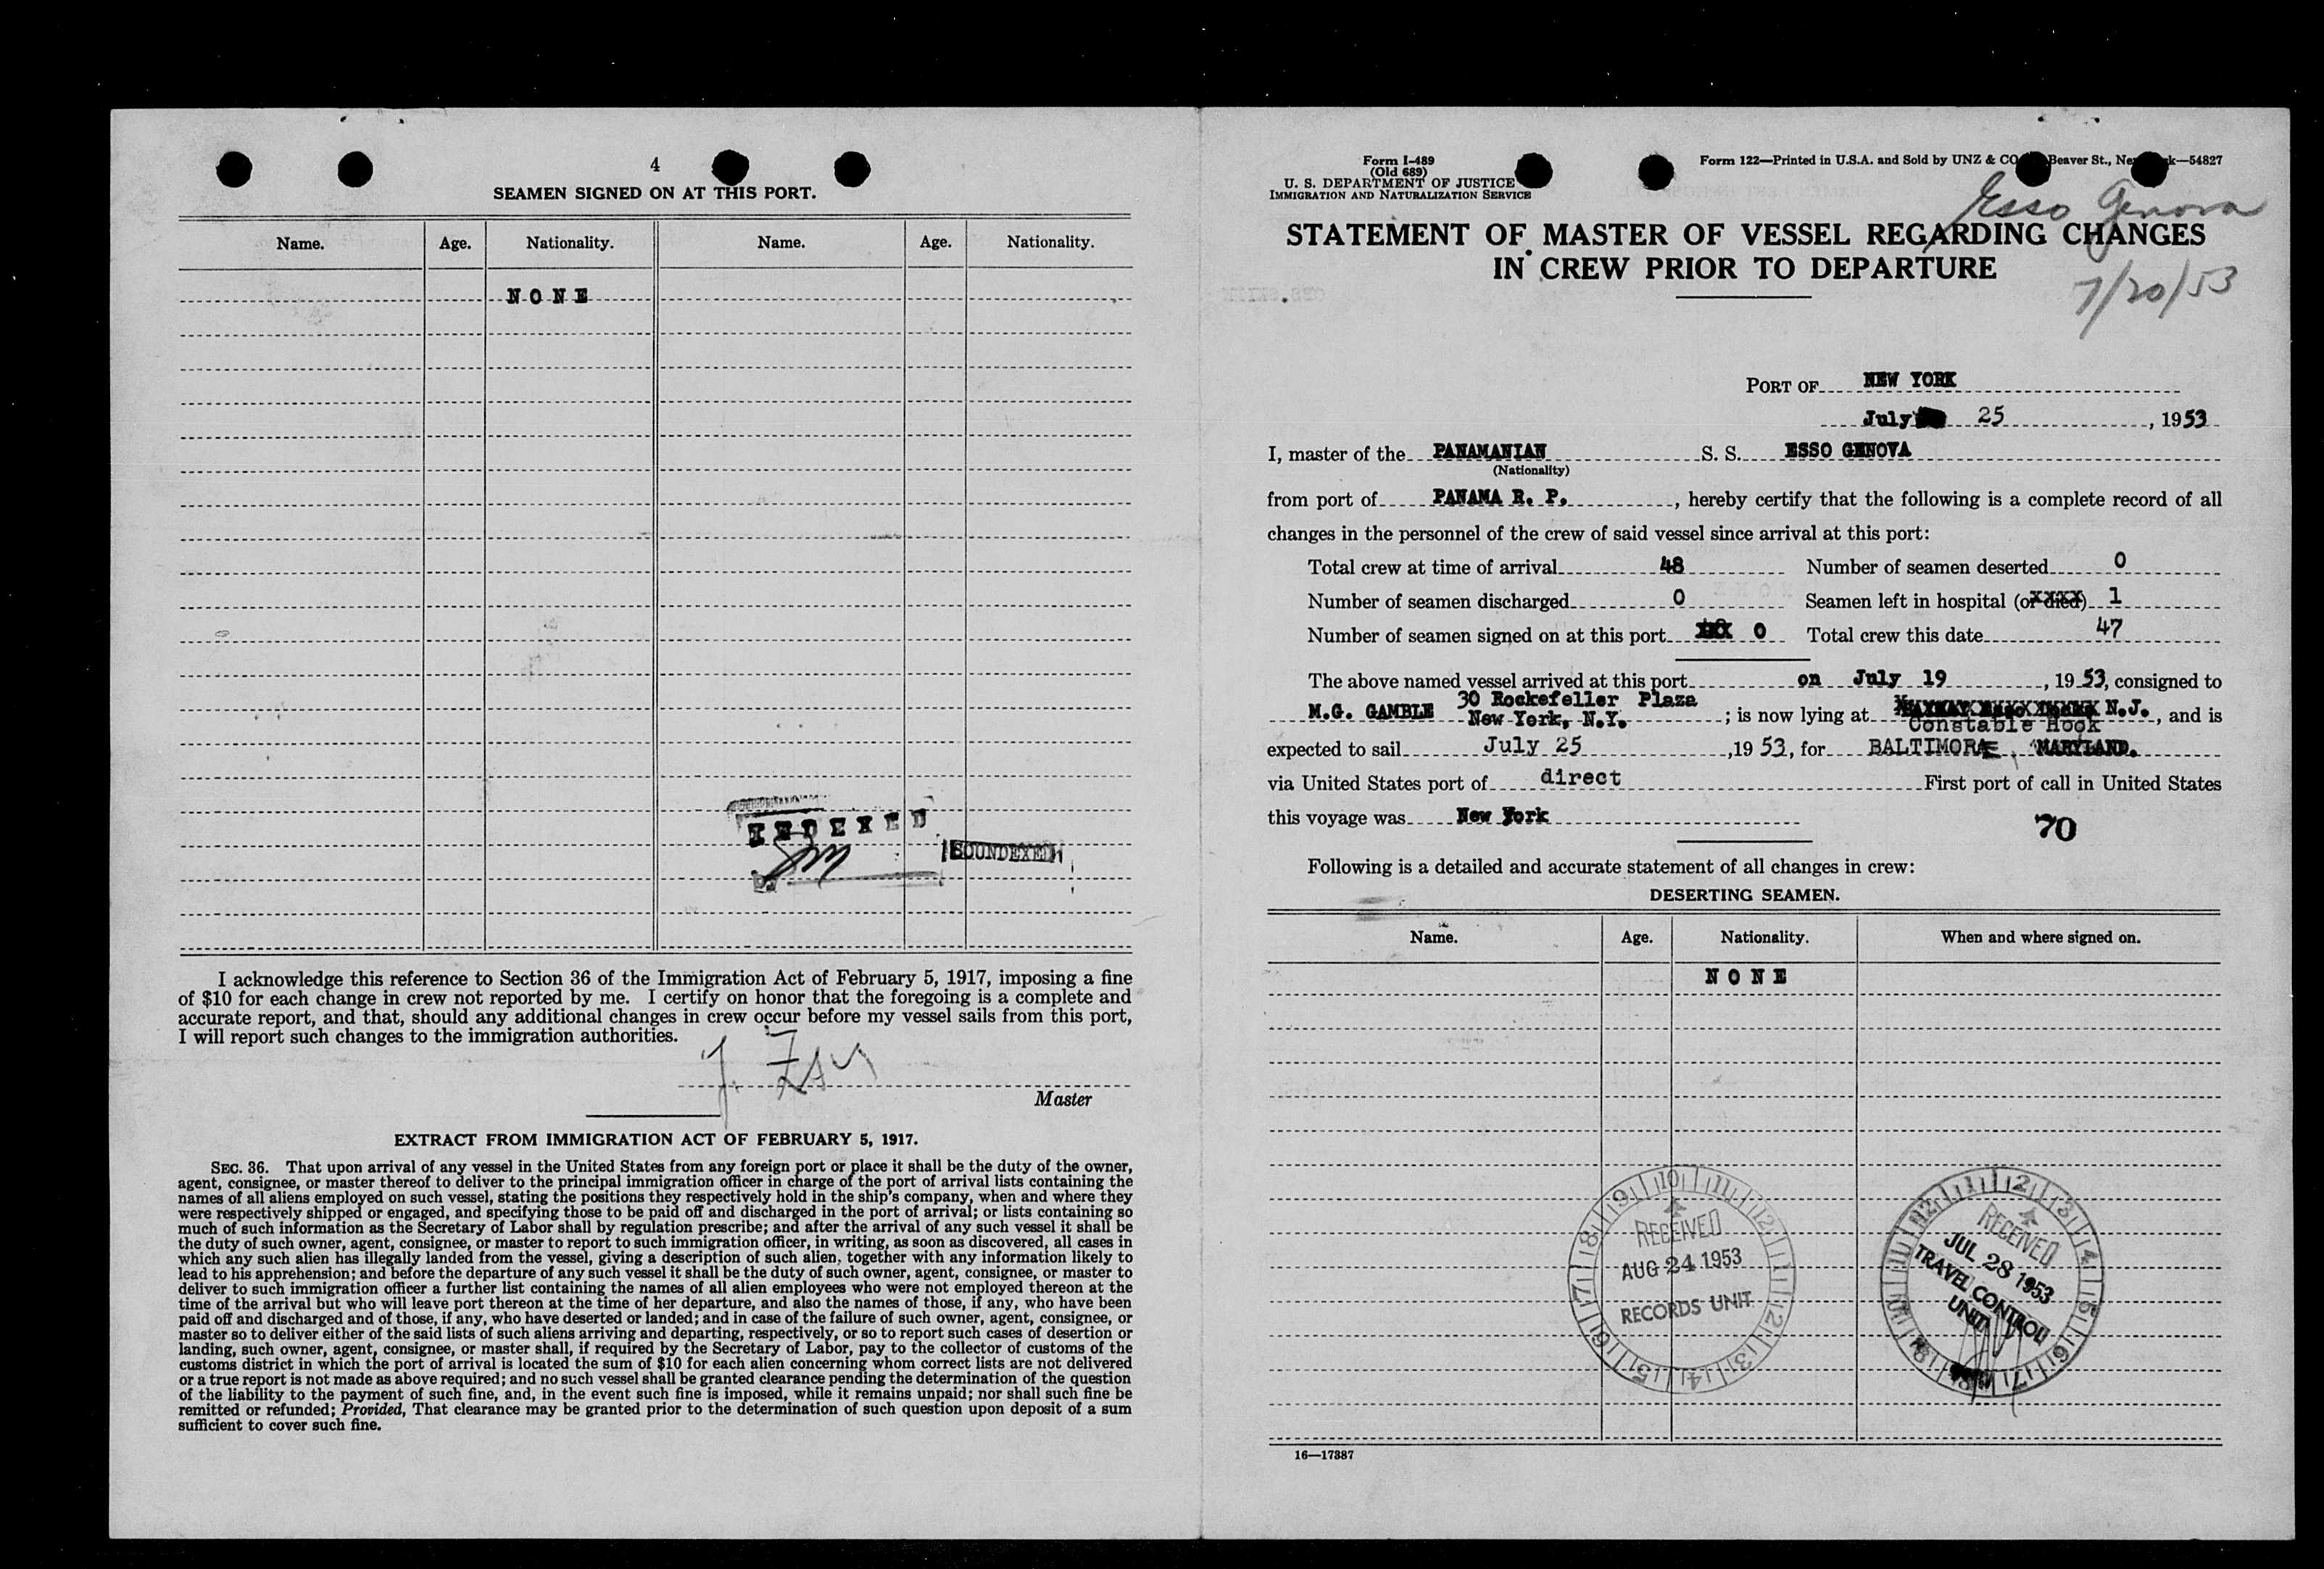 4
SEAMEN SIGNED ON AT THIS PORT.
Name. Age. Nationality. Name. Age. Nationality.
NONE
INDEXED
SOUNDEXED
I acknowledge this reference to Section 36 of the Immigration Act of February 5, 1917, imposing a fine
of $10 for each change in crew not reported by me. I certify on honor that the foregoing is a complete and
accurate report, and that, should any additional changes in crew occur before my vessel sails from this port,
I will report such changes to the immigration authorities.
J.
Master
EXTRACT FROM IMMIGRATION ACT OF FEBRUARY 5, 1917.
SEC. 36. That upon arrival of any vessel in the United States from any foreign port or place it shall be the duty of the owner,
agent, consignee, or master thereof to deliver to the principal immigration officer in charge of the port of arrival lists containing the
names of all aliens employed on such vessel, stating the positions they respectively hold in the ship's company, when and where they
were respectively shipped or engaged, and specifying those to be paid off and discharged in the port of arrival; or lists containing so
much of such information as the Secretary of Labor shall by regulation prescribe; and after the arrival of any such vessel it shall be
the duty of such owner, agent, consignee, or master to report to such immigration officer, in writing, as soon as discovered, all cases in
which any such alien has illegally landed from the vessel, giving a description of such alien, together with any information likely to
lead to his apprehension; and before the departure of any such vessel it shall be the duty of such owner, agent, consignee, or master to
deliver to such immigration officer a further list containing the names of all alien employees who were not employed thereon at the
time of the arrival but who will leave port thereon at the time of her departure, and also the names of those, if any, who have been
paid off and discharged and of those, if any, who have deserted or landed; and in case of the failure of such owner, agent, consignee, or
master so to deliver either of the said lists of such aliens arriving and departing, respectively, or so to report such cases of desertion or
landing, such owner, agent, consignee, or master shall, if required by the Secretary of Labor, pay to the collector of customs of the
customs district in which the port of arrival is located the sum of $10 for each alien concerning whom correct lists are not delivered
or a true report is not made as above required; and no such vessel shall be granted clearance pending the determination of the question
of the liability to the payment of such fine, and, in the event such fine is imposed, while it remains unpaid; nor shall such fine be
remitted or refunded; Provided, That clearance may be granted prior to the determination of such question upon deposit of a sum
sufficient to cover such fine.
Form I-489
(Old 689)
U. S. DEPARTMENT OF JUSTICE
IMMIGRATION AND NATURALIZATION SERVICE
Form 122—Printed in U.S.A. and Sold by UNZ & CO Beaver St., Ne k—54827
Esso Genova
STATEMENT OF MASTER OF VESSEL REGARDING CHANGES
IN CREW PRIOR TO DEPARTURE
7/20/53
PORT OF NEW YORK
July 25, 1953
I, master of the PANAMANIAN S. S. ESSO GENOVA
(Nationality)
from port of PANAMA R. P., hereby certify that the following is a complete record of all
changes in the personnel of the crew of said vessel since arrival at this port:
Total crew at time of arrival 48 Number of seamen deserted 0
Number of seamen discharged 0 Seamen left in hospital (or died) 1
Number of seamen signed on at this port 0 Total crew this date 47
The above named vessel arrived at this port on July 19, 1953, consigned to
M.G. GAMBLE 30 Rockefeller Plaza
New York, N.Y.; is now lying at N.J., and is
Constable Hook
expected to sail July 25, 1953, for BALTIMORE, MARYLAND.
via United States port of direct First port of call in United States
this voyage was New York
70
Following is a detailed and accurate statement of all changes in crew:
DESERTING SEAMEN.
Name. Age. Nationality. When and where signed on.
NONE
RECEIVED
AUG 24 1953
RECORDS UNIT
RECEIVED
JUL 28 1953
TRAVEL CONTROL
UNIT
16—17387